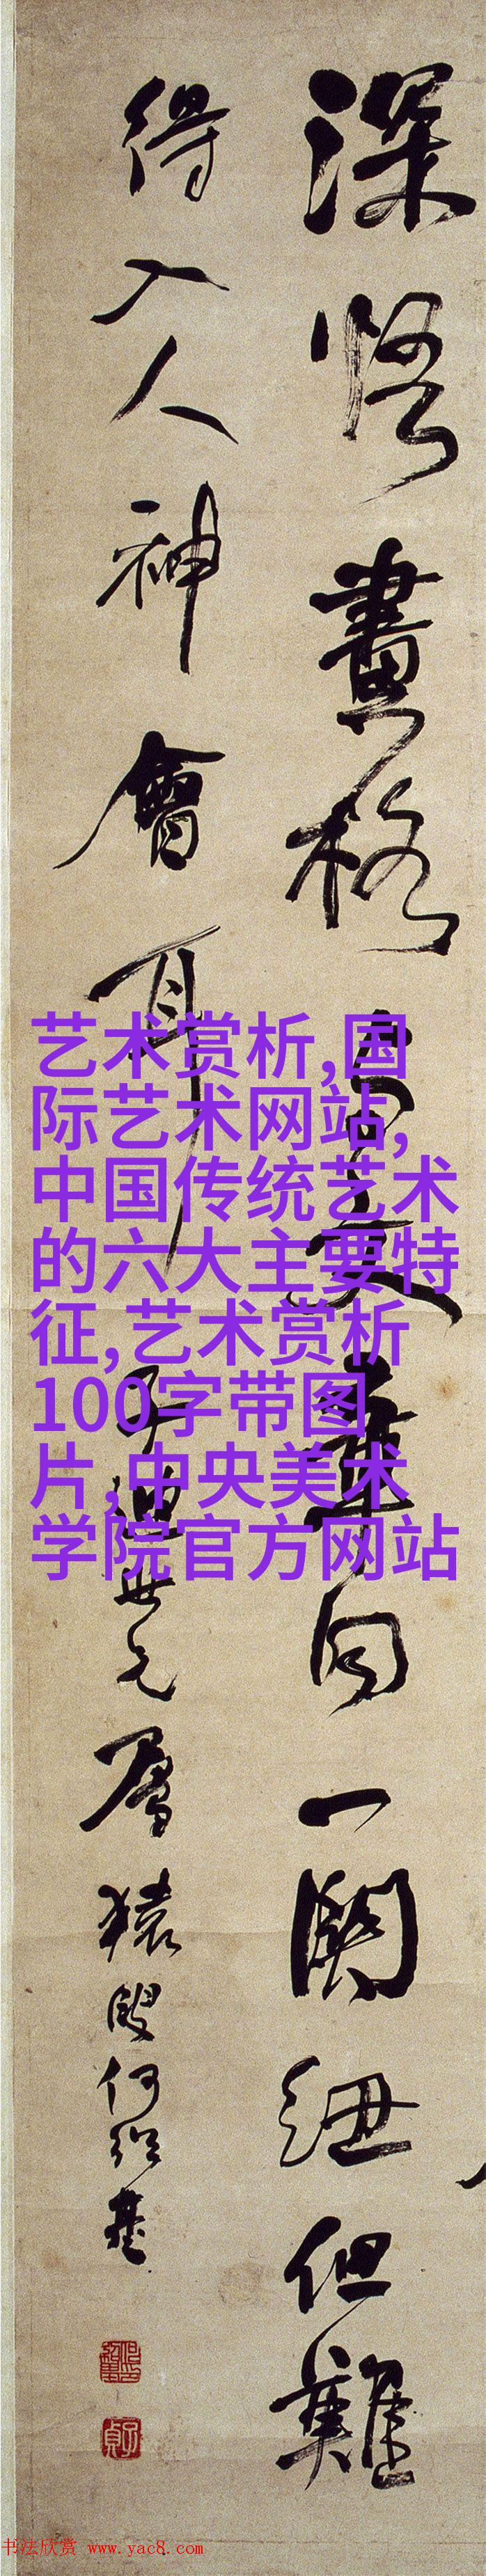 深悟畫格文章同一關紐但難
得入人神會耳
世兄屬 猿叟何紹基
子貞
艺术赏析,国
际艺术网站,
中国传统艺术
的六大主要特
征,艺术赏析
100字带图
片,中央美术
学院官方网站
书法欣赏 www.yac8.com